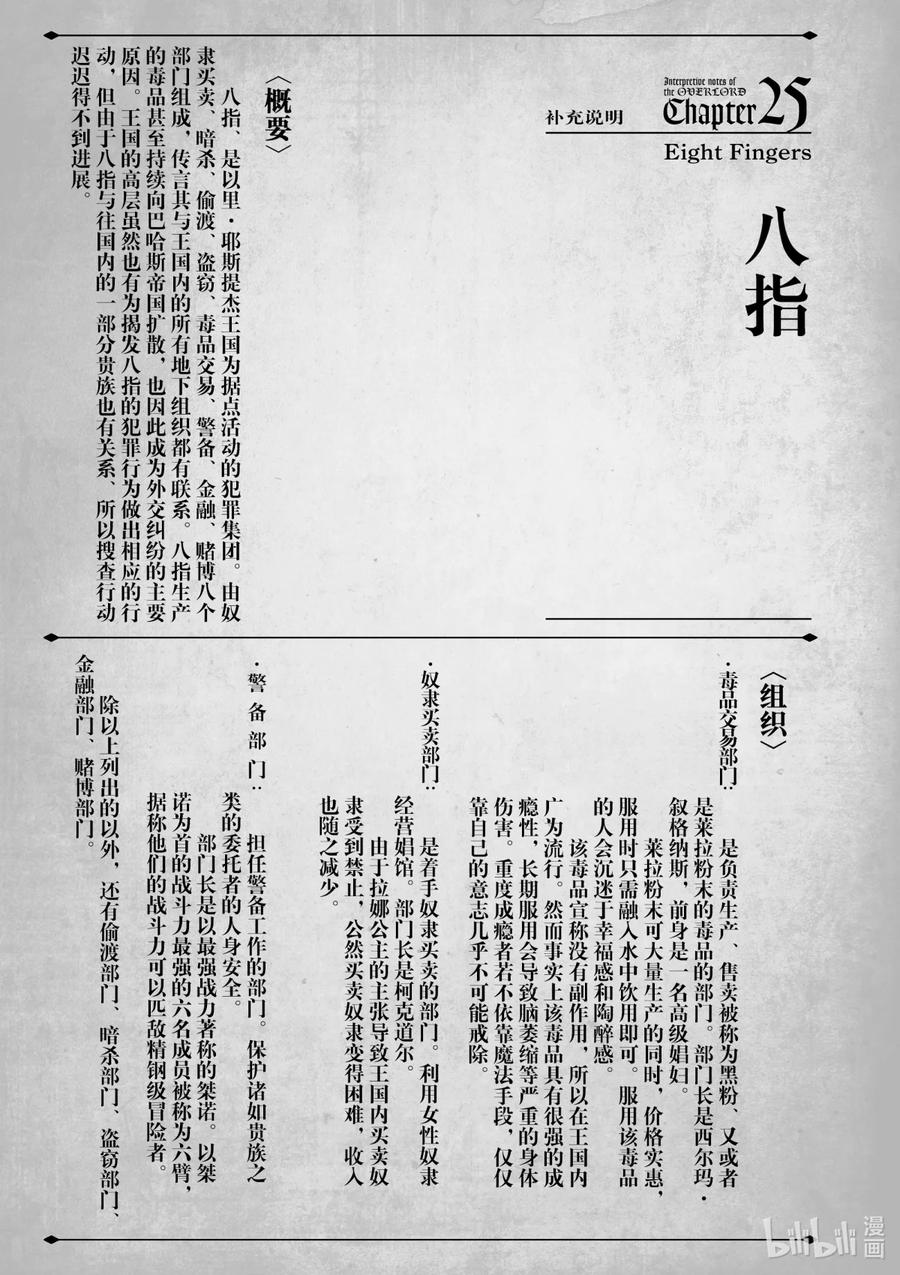 Interpretive notes of
the OVERLORD
Chapter 25
补充说明
Eight Fingers
八指
〈概要〉
八指、是以里·耶斯提杰王国为据点活动的犯罪集团。由奴
隶买卖、暗杀、偷渡、盗窃、毒品交易、警备、金融、赌博八个
部门组成，传言其与王国内的所有地下组织都有联系。八指生产
的毒品甚至持续向巴哈斯帝国扩散，也因此成为外交纠纷的主要
原因。王国的高层虽然也有为揭发八指的犯罪行为做出相应的行
动，但由于八指与往国内的一部分贵族也有关系、所以搜查行动
迟迟得不到进展。
〈组织〉
·毒品交易部门：
是负责生产、售卖被称为黑粉、又或者
是莱拉粉末的毒品的部门。部门长是西尔玛·
叙格纳斯，前身是一名高级娼妇。
莱拉粉末可大量生产的同时，价格实惠，
服用时只需融入水中饮用即可。服用该毒品
的人会沉迷于幸福感和陶醉感。
该毒品宣称没有副作用，所以在王国内
广为流行。然而事实上该毒品具有很强的成
瘾性，长期服用会导致脑萎缩等严重的身体
伤害。重度成瘾者若不依靠魔法手段，仅仅
靠自己的意志几乎不可能戒除。
·奴隶买卖部门：
是着手奴隶买卖的部门。利用女性奴隶
经营娼馆。部门长是柯克道尔。
由于拉娜公主的主张导致王国内买卖奴
隶受到禁止，公然买卖奴隶变得困难，收入
也随之减少。
·警备部门：
担任警备工作的部门。保护诸如贵族之
类的委托者的人身安全。
部门长是以最强战力著称的桀诺。以桀
诺为首的战斗力最强的六名成员被称为六臂，
据称他们的战斗力可以匹敌精钢级冒险者。
除以上列出的以外，还有偷渡部门、暗杀部门、盗窃部门、
金融部门、赌博部门。
bilibili 漫画